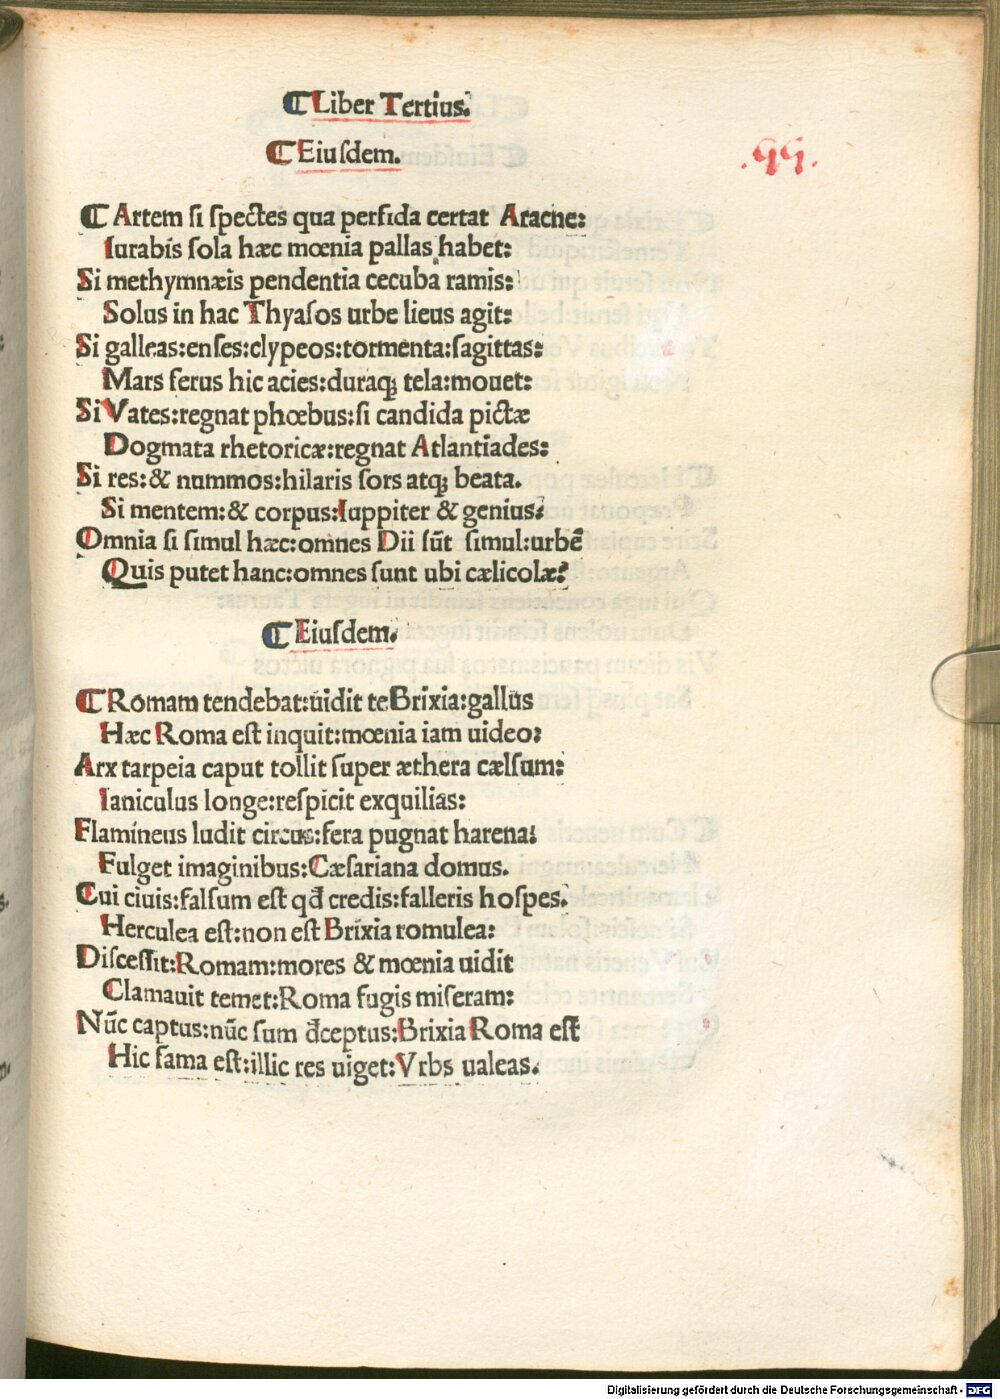 ¶ Liber Tertius.
¶ Eiuſdem.
.95.
¶ Artem ſi ſpectes qua perfida certat Aracne:
Iurabis ſola hæc mœnia pallas habet:
Si methymnæis pendentia cecuba ramis:
Solus in hac Thyaſos urbe lieus agit:
Si galleas:enſes:clypeos:tormenta:ſagittas:
Mars ferus hic acies:duraqꝫ tela:mouet:
Si Vates:regnat phœbus:ſi candida pictæ
Dogmata rhetoricæ:regnat Atlantiades:
Si res:& nummos:hilaris ſors atqꝫ beata.
Si mentem:& corpus:Iuppiter & genius:
Omnia ſi ſimul hæc:omnes Dii ſūt ſimul:urbē
Quis putet hanc:omnes ſunt ubi cælicolæ?
¶ Eiuſdem.
¶ Romam tendebat:uidit te Brixia:gallus
Hæc Roma eſt inquit:mœnia iam uideo:
Arx tarpeia caput tollit ſuper æthera cælſum:
Ianiculus longe:reſpicit exquilias:
Flamineus ludit circus:fera pugnat harena:
Fulget imaginibus:Cæſariana domus.
Cui ciuis:falſum eſt qđ credis:falleris hoſpes.
Herculea eſt:non eſt Brixia romulea:
Diſceſſit:Romam:mores & mœnia uidit
Clamauit temet:Roma fugis miſeram:
Nūc captus:nūc ſum đceptus:Brixia Roma eſt
Hic fama eſt:illic res uiget:Vrbs ualeas.
Digitalisierung gefördert durch die Deutsche Forschungsgemeinschaft - DFG